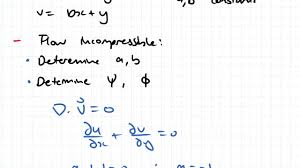 a, b constant
v = bx + y
- Flow incompressible:
• Determine a, b
• Determine ψ, ϕ
∇. v⃗ = 0
∂u/∂x + ∂v/∂y = 0